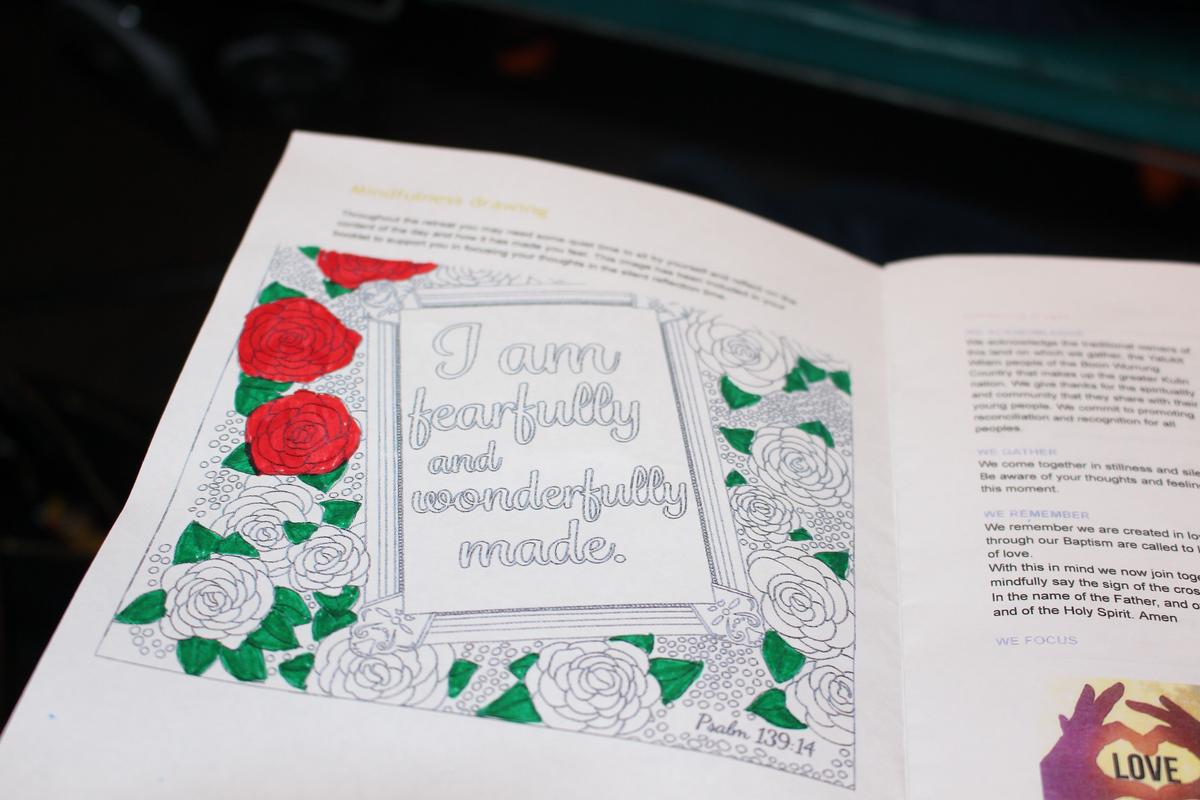 Mindfulness drawing
Throughout the retreat you may need some quiet time to sit by yourself and reflect on the
content of the day and how it has made you feel. This image has been included in your
booklet to support you in focusing your thoughts in the silent reflection time.
I am
fearfully
and
wonderfully
made.
Psalm 139:14
WE ACKNOWLEDGE
We acknowledge the traditional owners of
this land on which we gather, the Yalukit
Willam people of the Boon Wurrung
Country that makes up the greater Kulin
nation. We give thanks for the spirituality
and community that they share with their
young people. We commit to promoting
reconciliation and recognition for all
peoples.
WE GATHER
We come together in stillness and sile
Be aware of your thoughts and feeling
this moment.
WE REMEMBER
We remember we are created in lo
through our Baptism are called to
of love.
With this in mind we now join toge
mindfully say the sign of the cros
In the name of the Father, and o
and of the Holy Spirit. Amen
WE FOCUS
LOVE